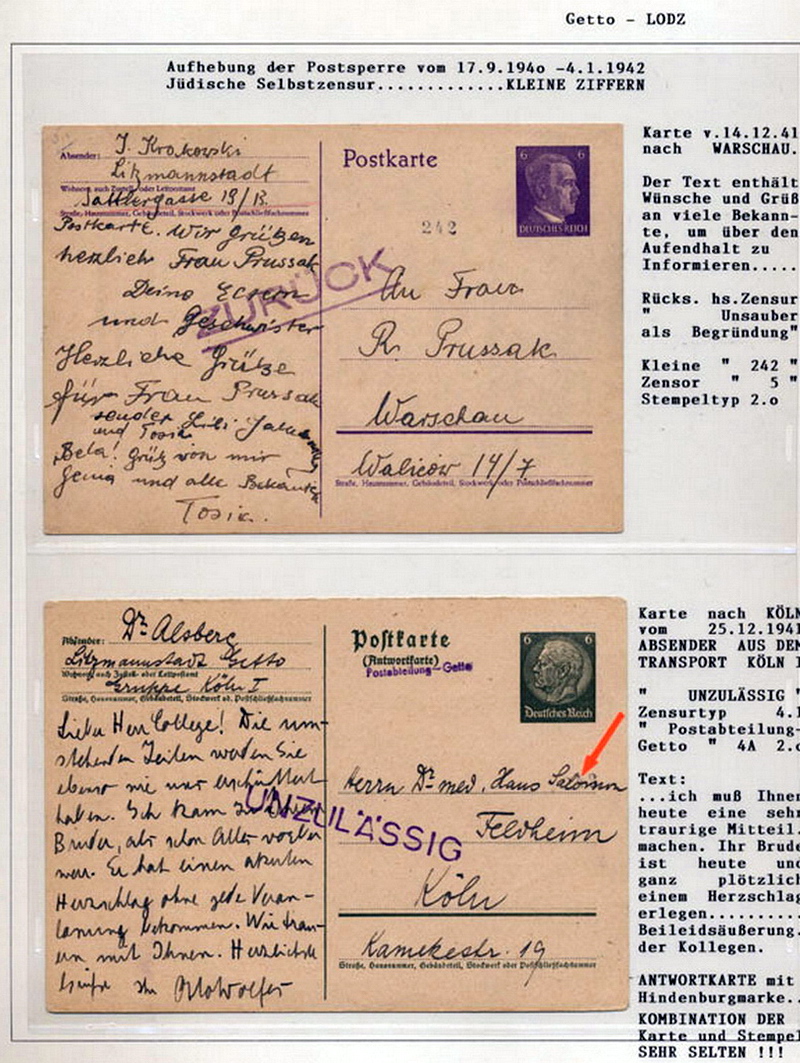 Getto - LODZ
Aufhebung der Postsperre vom 17.9.194o -4.1.1942
Jüdische Selbstzensur.............KLEINE ZIFFERN
Absender: J. Krakowski
Litzmannstadt
Wohnort, auch Zustell- oder Leitpostamt
Sattlergasse 19/13.
Straße, Hausnummer, Gebäudeteil, Stockwerk oder Postschließfachnummer
Postkarte. Wir grüßen
herzlich Frau Prussak
Deine Eltern
und Geschwister
Herzliche Grüße
für Frau Prussak
sendet
und Tosia
Bela! Grüß von mir
Genia und alle
Tosia.
Postkarte
6 6
DEUTSCHES REICH
242
ZURÜCK
An Frau
R. Prussak
Warschau
Walicow 14/7
Straße, Hausnummer, Gebäudeteil, Stockwerk oder Postschließfachnummer
Karte v.14.12.41
nach WARSCHAU.
Der Text enthält
Wünsche und Grüß
an viele Bekann-
te, um über den
Aufendhalt zu
Informieren.....
Rücks. hs.Zensur
" Unsauber
als Begründung"
Kleine " 242 "
Zensor " 5 "
Stempeltyp 2.o
Absender: Dr. Alsberg
Litzmannstadt Getto
Wohnort, auch Zustell- oder Leitpostamt
Gruppe Köln I
Straße, Hausnummer, Gebäudeteil, Stockwerk od. Postschließfachnummer
Lieber Herr College! Die um-
stehenden Zeilen werden Sie
ebenso wie uns erschüttert
haben. Ich kam zu
Bruder, als schon Alles vorbei
war. Er hat einen akuten
Herzschlag ohne jede Veran-
lassung bekommen. Wir trau-
ern mit Ihnen. Herzlichste
Postkarte
(Antwortkarte)
Postabteilung-Getto
6 6
Deutsches Reich
Herrn Dr. med. Hans Salomon
UNZULÄSSIG
Feldheim
Köln
Kamekestr. 19
Straße, Hausnummer, Gebäudeteil, Stockwerk oder Postschließfachnummer
Karte nach KÖLN
vom 25.12.1941
ABSENDER AUS DEM
TRANSPORT KÖLN I
" UNZULÄSSIG "
Zensurtyp 4.1
" Postabteilung-
Getto " 4A 2.o
Text:
...ich muß Ihnen
heute eine sehr
traurige Mitteil.
machen. Ihr Brude
ist heute und
ganz plötzlich
einem Herzschlag
erlegen..........
Beileidsäußerung.
der Kollegen.
ANTWORTKARTE mit
Hindenburgmarke..
KOMBINATION DER
Karte und Stempel
SEHR SELTEN !!!